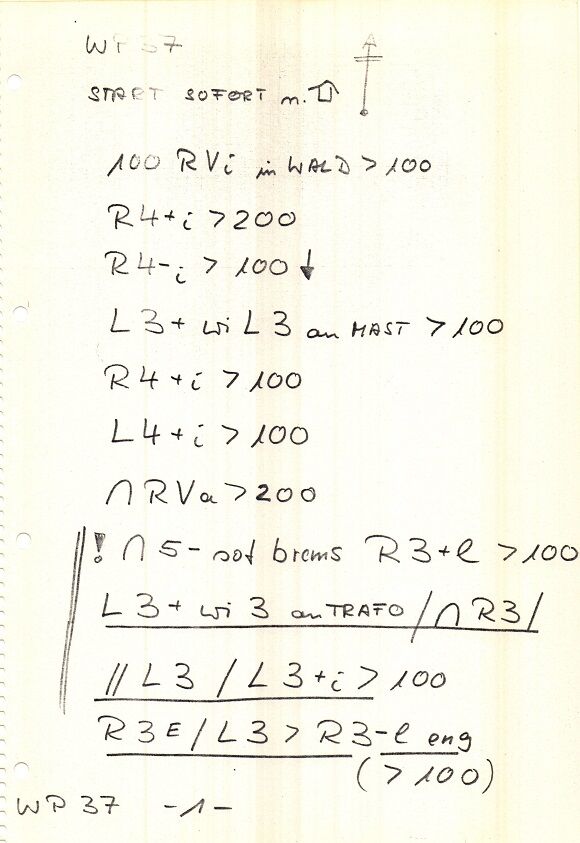 WP 37
START SOFORT n.
100 RVi in WALD > 100
R4+i > 200
R4-i > 100 ↓
L3+ wi L3 an MAST > 100
R4+i > 100
L4+i > 100
∩ RVa > 200
! ∩ 5- sof brems R3+l > 100
L3+ wi 3 an TRAFO / ∩ R3 /
// L3 / L3+i > 100
R3E / L3 > R3-l eng
(> 100)
WP 37 -1-